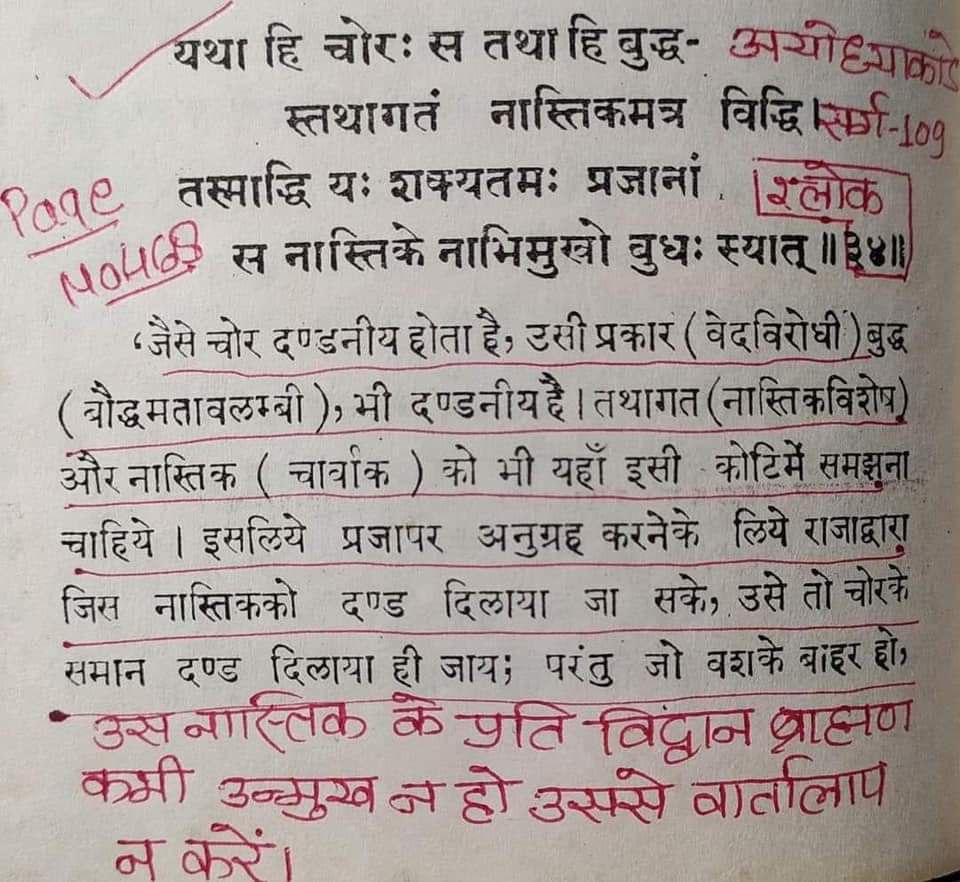 यथा हि चोरः स तथा हि बुद्ध-
अयोध्याकांडे
स्तथागतं नास्तिकमत्र विद्धि।
सर्ग-109
तस्माद्धि यः शक्यतमः प्रजानां
श्लोक
Page
स नास्तिके नाभिमुखो वुधः स्यात् ॥३४॥
No463
‘जैसे चोर दण्डनीय होता है, उसी प्रकार ( वेदविरोधी ) बुद्ध
( बौद्धमतावलम्बी ), भी दण्डनीय है । तथागत (नास्तिकविशेष)
और नास्तिक ( चार्वाक ) को भी यहाँ इसी कोटिमें समझना
चाहिये । इसलिये प्रजापर अनुग्रह करनेके लिये राजाद्वारा
जिस नास्तिकको दण्ड दिलाया जा सके, उसे तो चोरके
समान दण्ड दिलाया ही जाय; परंतु जो वशके बाहर हो,
उस नास्तिक के प्रति विद्वान ब्राह्मण
कभी उन्मुख न हो उससे वार्तालाप
न करें।